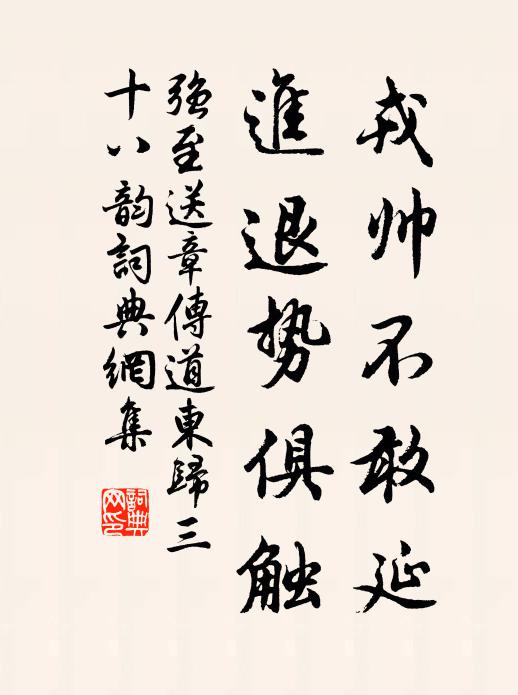 戎帅不敢延
進退势俱触
強至送章傳道東歸三
十八韵詞典網集
詞典
网印